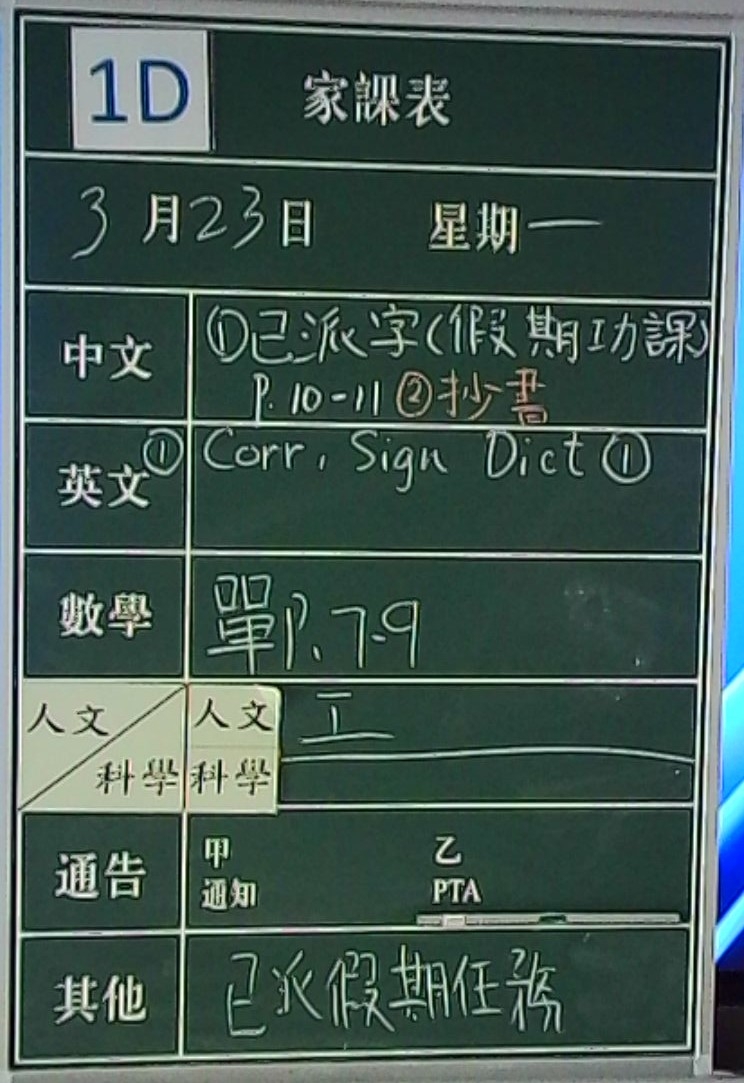 1D 家課表
3月23日 星期一
中文 ①已派字(假期功課)
P. 10-11 ②抄書
英文 ① Corr, Sign Dict ①
數學 單P. 7-9
人文 人文 工
科學 科學
通告 甲 乙
通知 PTA
其他 已派假期任務